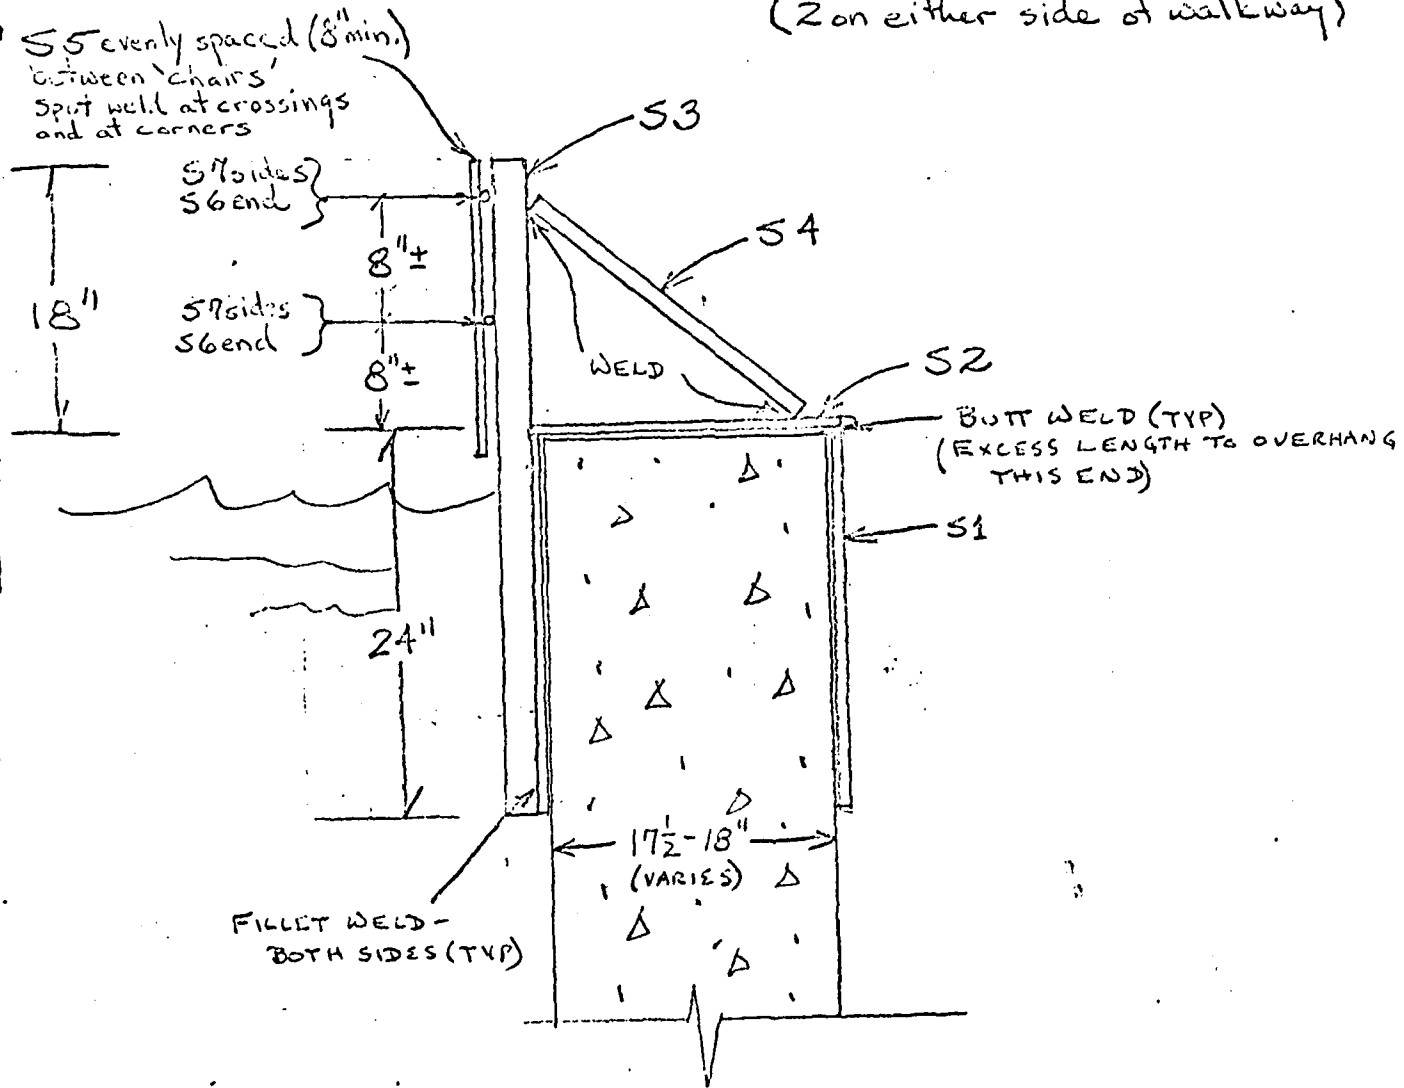 (2 on either side of walkway)
S5 evenly spaced (8" min.)
between 'chairs'
Spot weld at crossings
and at corners
S3
S7 sides
S6 end
8"±
S4
18"
S7 sides
S6 end
8"±
WELD
S2
BUTT WELD (TYP)
(EXCESS LENGTH TO OVERHANG
THIS END)
S1
24"
17½-18"
(VARIES)
FILLET WELD-
BOTH SIDES (TYP)